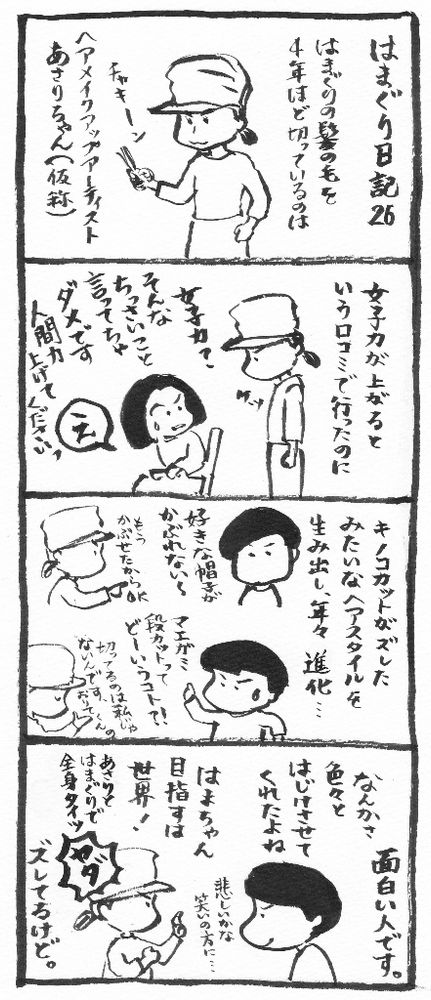 はまぐり日記 26
はまぐりの髪の毛を
4年ほど切っているのは
チャキーン
ヘアメイクアップアーティスト
あさりちゃん(仮称)
女子力が上がると
いう口コミで行ったのに
女子力?
そんな
ちっさいこと
言ってちゃ
ダメです
人間力
上げてくださいっ
え
キノコカットがズレた
みたいなヘアスタイルを
生み出し、年々 進化…
好きな帽子が
かぶれない〜
もう
かぶせたから
OK
マエガミ
段カットって
どーいうコトて?!
切ってるのは私じゃ
ないんです。
なんかさ
色々と
はじけさせて
くれたよね
面白い人です。
はまちゃん
目指すは
世界!
悲しいかな
笑いの方に…
あさりと
はまぐりで
全身タイツ
ヤダ
ズレてるけど。